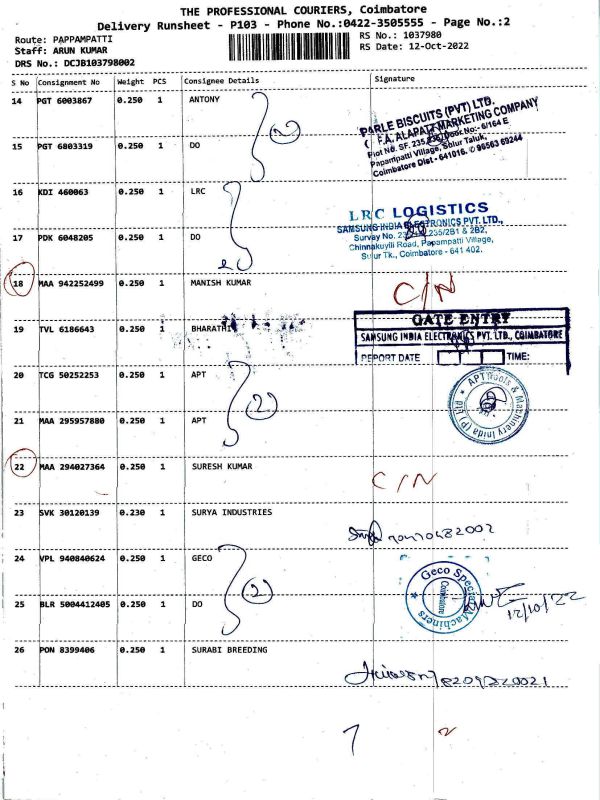 THE PROFESSIONAL COURIERS, Coimbatore
Delivery Runsheet - P103 - Phone No.:0422-3505555 - Page No.:2
Route: PAPPAMPATTI
RS No.: 1037980
Staff: ARUN KUMAR
RS Date: 12-Oct-2022
DRS No.: DCJB103798002
S No Consignment No Weight PCS Consignee Details Signature
14 PGT 6003867 0.250 1 ANTONY
2
PARLE BISCUITS (PVT) LTD.
F.A. ALAPATT MARKETING COMPANY
Papampatti Village, Sulur Taluk,
Coimbatore Dist - 641016.
15 PGT 6803319 0.250 1 DO
16 KDI 460063 0.250 1 LRC
LRC LOGISTICS
SAMSUNG INDIA ELECTRONICS PVT. LTD.,
Chinnakuyili Road, Papampatti Village,
Sulur Tk., Coimbatore - 641 402.
17 PDK 6048205 0.250 1 DO
2
18 MAA 942252499 0.250 1 MANISH KUMAR
C/N
19 TVL 6186643 0.250 1 BHARATHI
GATE ENTRY
SAMSUNG INDIA ELECTRONICS PVT. LTD., COIMBATORE
REPORT DATE TIME:
20 TCG 50252253 0.250 1 APT
2
APT Tools & Machinery India (P) Ltd
21 MAA 295957880 0.250 1 APT
22 MAA 294027364 0.250 1 SURESH KUMAR
C/N
23 SVK 30120139 0.230 1 SURYA INDUSTRIES
24 VPL 940840624 0.250 1 GECO
2
Geco Special Machiners
Coimbatore
25 BLR 5004412405 0.250 1 DO
26 PON 8399406 0.250 1 SURABI BREEDING
7 2